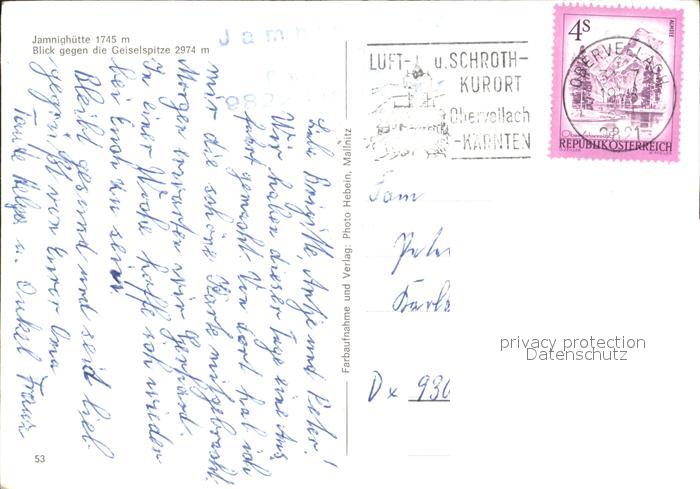 Jamnighütte 1745 m
Blick gegen die Geiselspitze 2974 m
Jam
9822
LUFT- u. SCHROTH-
KURORT
Obervellach
-KÄRNTEN
4S
ALMSEE
OBERVELLACH
9821
REPUBLIK ÖSTERREICH
Liebe Brigitte, Antje und Peter!
Wir haben dieser Tage eine Aus
fahrt gemacht. Von dort hat ich
mir die schöne Karte mitgebracht.
Morgen erwarten wir Gerhard.
In einer Woche hoffe ich wieder
bei Euch zu sein.
Bleibt gesund und seid viel
gegrüßt von Eurer Oma
Tante Helga u. Onkel Franz
Farbaufnahme und Verlag: Photo Hebein, Mallnitz
Fam
Peter
Karls
D x 930
privacy protection
Datenschutz
53